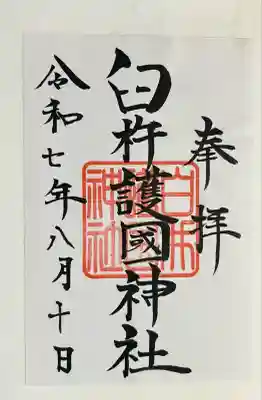 奉拝
臼杵護國神社
令和七年八月十日